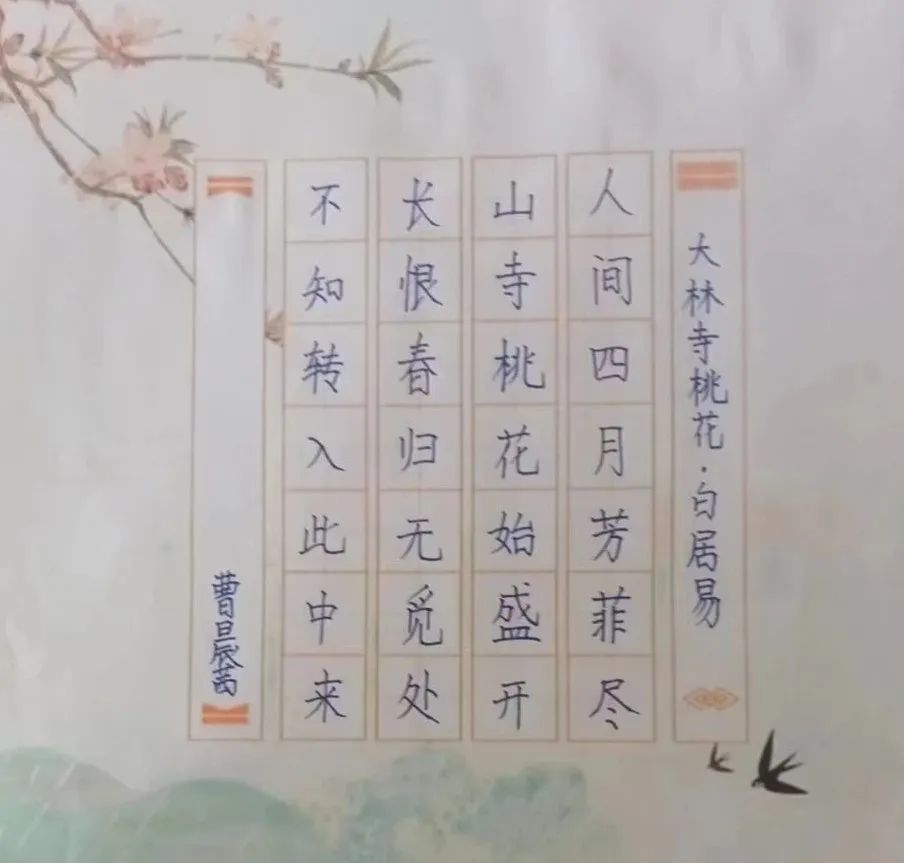 大林寺桃花·白居易
人间四月芳菲尽
山寺桃花始盛开
长恨春归无觅处
不知转入此中来
曹晨茜